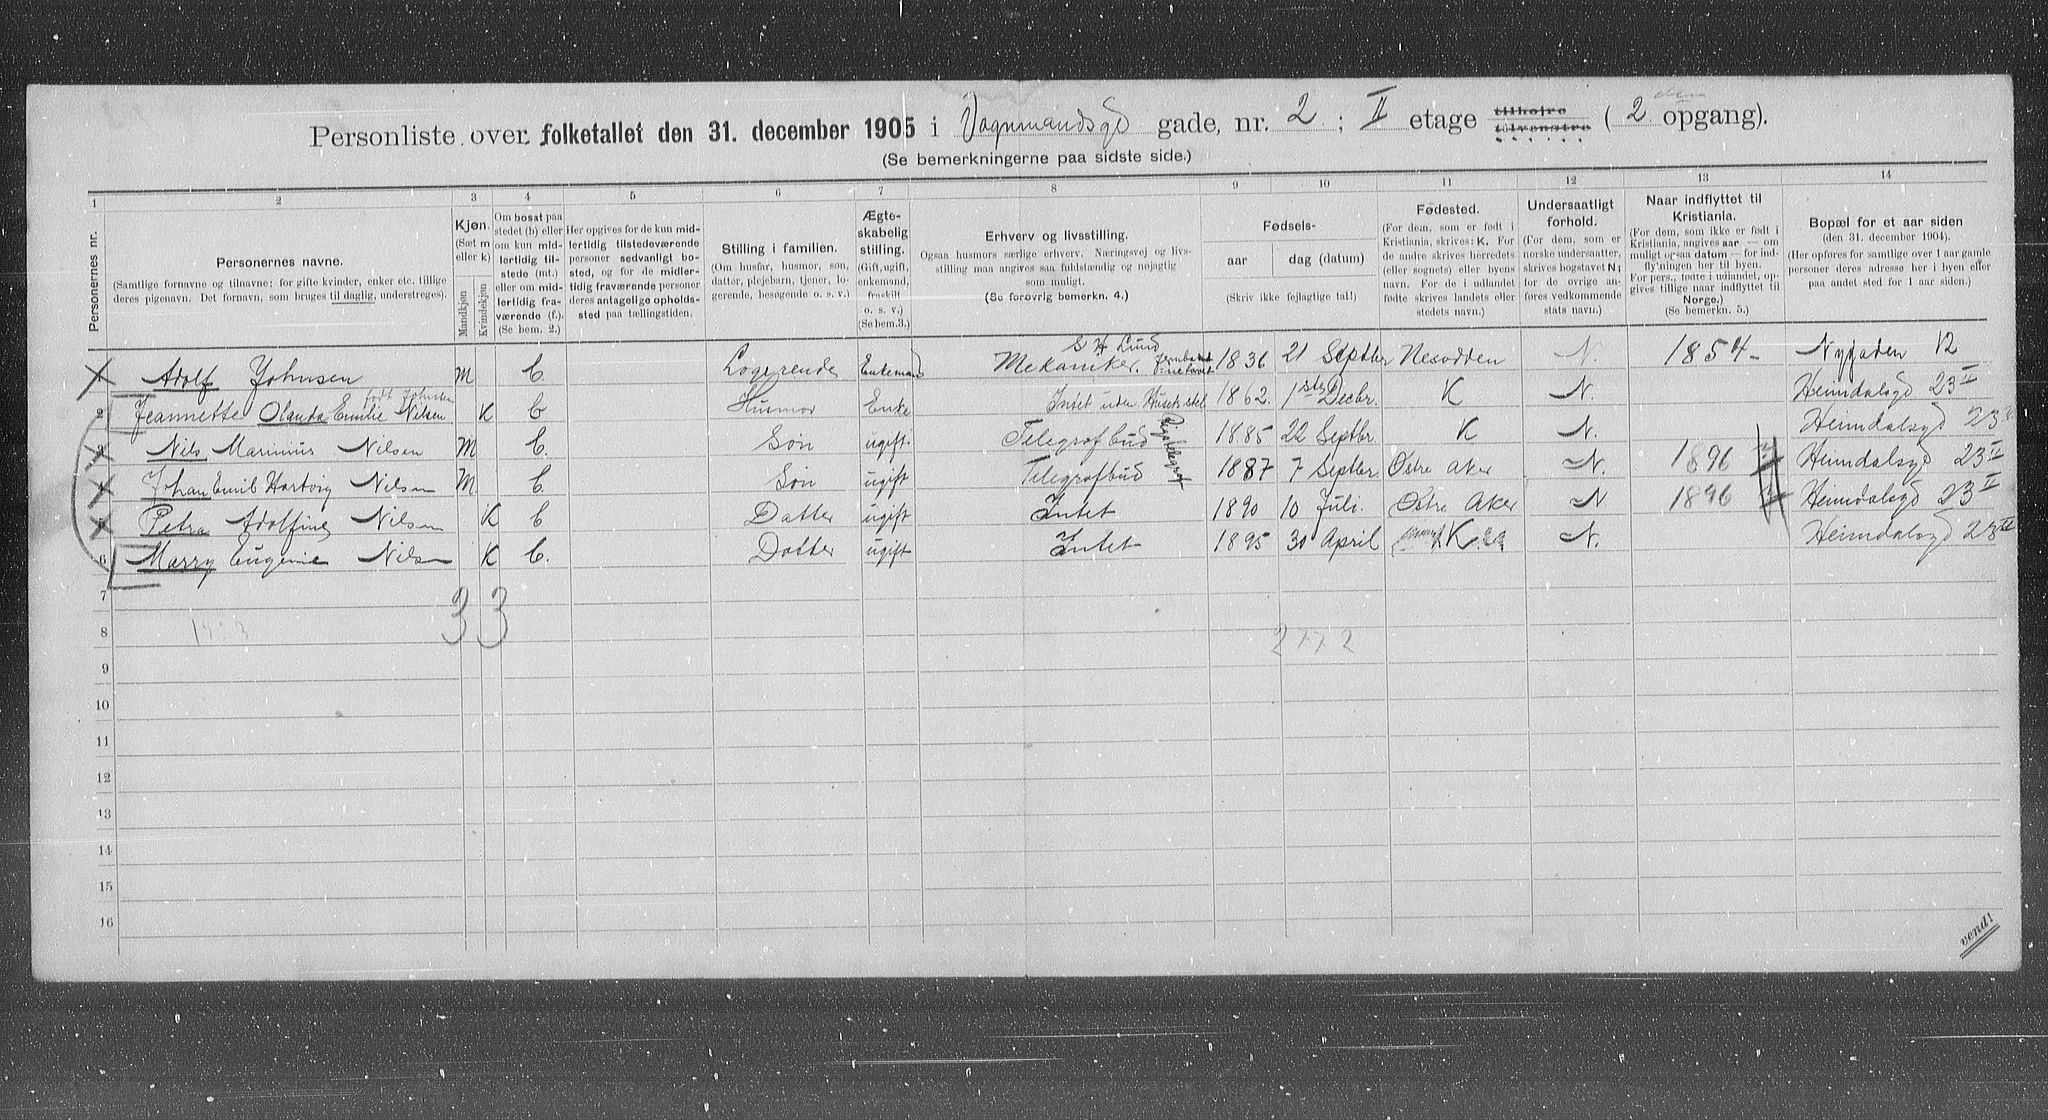 Personliste over folketallet den 31. december 1905 i Vognmandsgd gade, nr. 2 ; II etage tilhøjre tilvenstre ( 2 den opgang).
(Se bemerkningerne paa sidste side.)
1 2 3 4 5 6 7 8 9 10 11 12 13 14
Personernes nr.
Personernes navne.
(Samtlige fornavne og tilnavne; for gifte kvinder, enker etc. tillige
deres pigenavn. Det fornavn, som bruges til daglig, understreges).
Kjøn.
(Sæt m
eller k)
Mandkjøn
Kvindekjøn
Om bosat paa
stedet (b) eller
om kun mid-
lertidig til-
stede (mt.)
eller om mid-
lertidig fra-
værende (f.).
(Se bem. 2.)
Her opgives for de kun mid-
lertidig tilstedeværende
personer sedvanlig bo-
sted, og for de midler-
tidig fraværende personer
deres antagelige ophold-
sted paa tællingstiden.
Stilling i familien.
(Om husfar, husmor, søn,
datter, plejebarn, tjener, lo-
gerende, besøgende o. s. v.)
Ægte-
skabelig
stilling.
(Gift, ugift,
enkemand,
fraskilt
o. s. v.)
(Se bem.3.)
Erhverv og livsstilling.
Ogsaa husmors særlige erhverv. Næringsvej og livs-
stilling maa angives saa fuldstændig og nøjagtig
som muligt.
(Se forøvrig bemerkn. 4.)
Fødsels-
aar dag (datum)
(Skriv ikke fejlagtige tal!)
Fødested.
(For dem, som er født i
Kristiania, skrives: K. For
de andre skrives herredets
(eller sognets) eller byens
navn. For de i udlandet
fødte skrives landets eller
stedets navn.)
Undersaatligt
forhold.
(For dem, som er
norske undersaatter,
skrives bogstavet N;
for de øvrige an-
føres vedkommende
stats navn.)
Naar indflyttet til
Kristiania.
(For dem, som ikke er født i
Kristiania, angives aar — om
muligt ogsaa datum — for ind-
flytningen her til byen.
For pers., fødte i udlandet, op-
gives tillige naar indflyttet til
Norge.)
(Se bemerkn. 5.)
Bopæl for et aar siden
(den 31. december 1904).
(Her opføres for samtlige over 1 aar gamle
personer deres adresse her i byen eller
paa andet sted for 1 aar siden.)
Adolf Johnsen M b. Logerende Enkemand S H Lund Mekaniker. 1836 21 Septbr Nesodden N. 1854- Nygaden 12
født Johnsen
2 Jeannette Olanda Emilie Nilsen K b Husmor Enke Intet uden Huset stel 1862. 1ste Decbr. K N. Heimdalsgd 23 II
3 Nils Marinius Nilsen M b. Søn ugift. Telegrafbud 1885 22 Septbr K N. Heimdalsgd 23 II
Rigstelegraf
4 Johan Emil Hartvig Nilsen M. b. Søn ugift Telegrafbud 1887 7 Septbr Østre Aker N. 1896 Heimdalsgd 23 II
5 Petra Adolfine Nilsen K b Datter ugift Intet 1890 10 Juli. Østre Aker N 1896 Heimdalsgd 23 II
6 Marry Eugenie Nilsen K b. Datter ugift Intet 1895 30 April K N. Heimdalsgd 23 II
7
3 3
8 2772
9
10
11
12
13
14
15
16
vend!